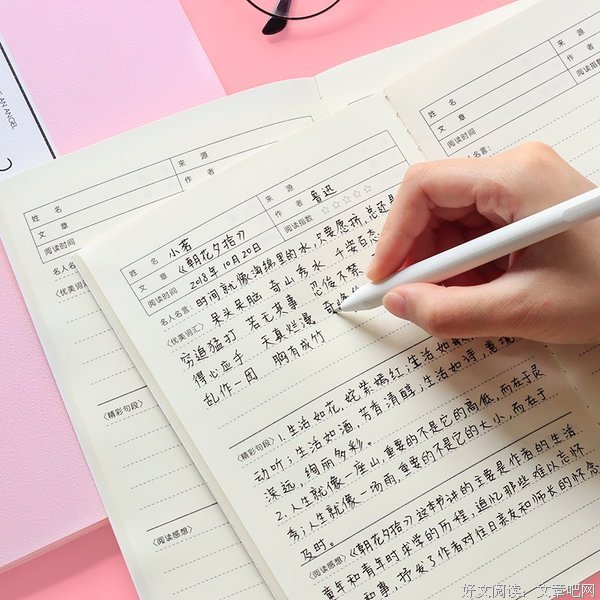 AN ANGEL
姓 名
来 源
文 章
作 者
阅读时间
阅读指数
名人名言:
姓 名
来 源
文 章
作 者
阅读时间
名人名
〈优美词
〈精彩句段〉
〈阅读感想〉
姓 名 小茗
来 源
文 章 《朝花夕拾》
作 者 鲁迅
阅读时间 2018年10月20日
阅读指数 ☆☆☆☆☆
名人名言: 时间就像海绵里的水,只要愿挤,总还是
〈优美词汇〉 呆头呆脑 奇山秀水 千姿百态
穷追猛打 若无其事 忍俊不禁
得心应手 天真烂漫
乱作一团 胸有成竹
〈精彩句段〉 1.生活如花,姹紫嫣红,生活如
动听;生活如酒,芳香清醇,生活如诗,意境
深远,绚丽多彩。
2.人生就像一座山,重要的不是它的高低,而在于灵
秀;人生就像一场雨,重要的不是它的大小,而在于
及时。
〈阅读感想〉 《朝花夕拾》这本书讲的主要是作者的生活
童年和青年时求学的历程,追忆那些难以忘怀
和事,抒发了作者对往日亲友和师长的怀念
好文阅读:文章吧网